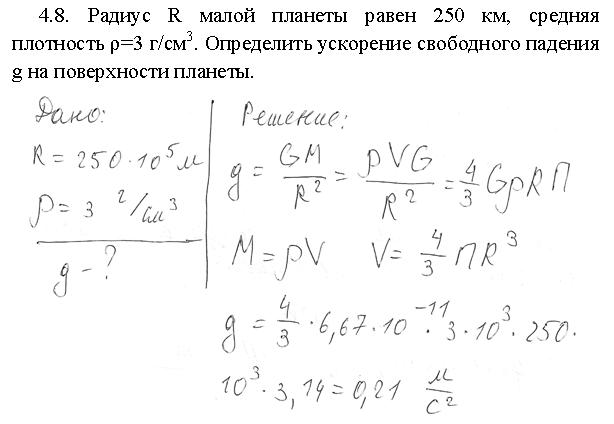 4.8. Радиус R малой планеты равен 250 км, средняя
плотность ρ=3 г/см³. Определить ускорение свободного падения
g на поверхности планеты.
Дано:
R = 250·10⁵ м
ρ = 3 г/см³
g - ?
Решение:
g = GM/R² = ρVG/R² = 4/3 GρRπ
M = ρV V = 4/3 πR³
g = 4/3 · 6,67·10⁻¹¹ · 3·10³ · 250·
10³ · 3,14 = 0,21 м/с²